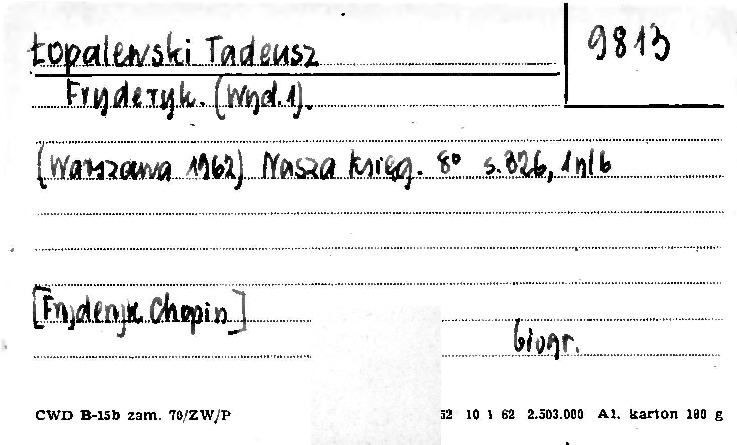 Łopalewski Tadeusz
9813
Fryderyk. (Wyd. 1).
(Warszawa 1962) Nasza Księg. 8° s. 326, 1 nlb
[Fryderyk Chopin]
biogr.
CWD B-15b zam. 70/ZW/P 52 10 1 62 2.503.000 A1. karton 180 g